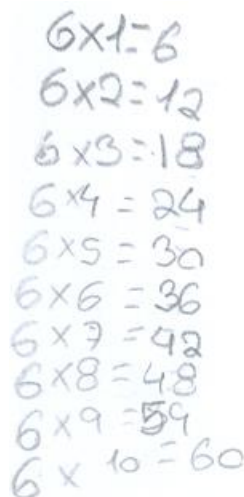 6×1=6
6×2=12
6×3=18
6×4=24
6×5=30
6×6=36
6×7=42
6×8=48
6×9=59
6×10=60